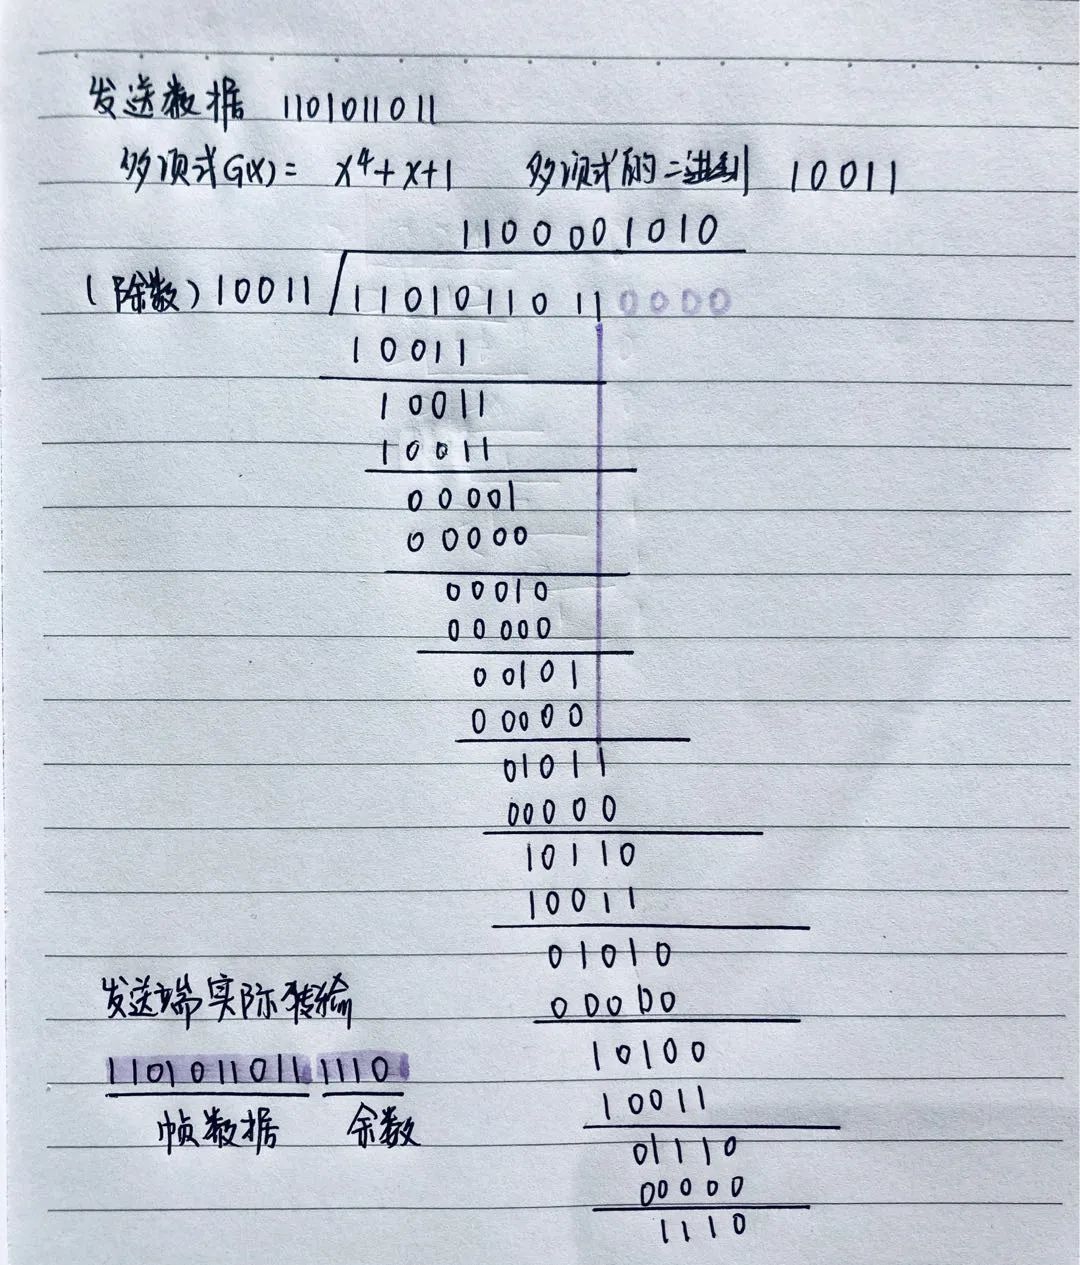 发送数据 1101011011
多项式G(x)= x⁴+x+1 多项式的二进制 10011
1100001010
(除数)10011 11010110110000
10011
10011
10011
00001
00000
00010
00000
00101
00000
01011
00000
10110
10011
01010
00000
10100
10011
01110
00000
1110
发送端实际传输
1101011011 1110
帧数据 余数